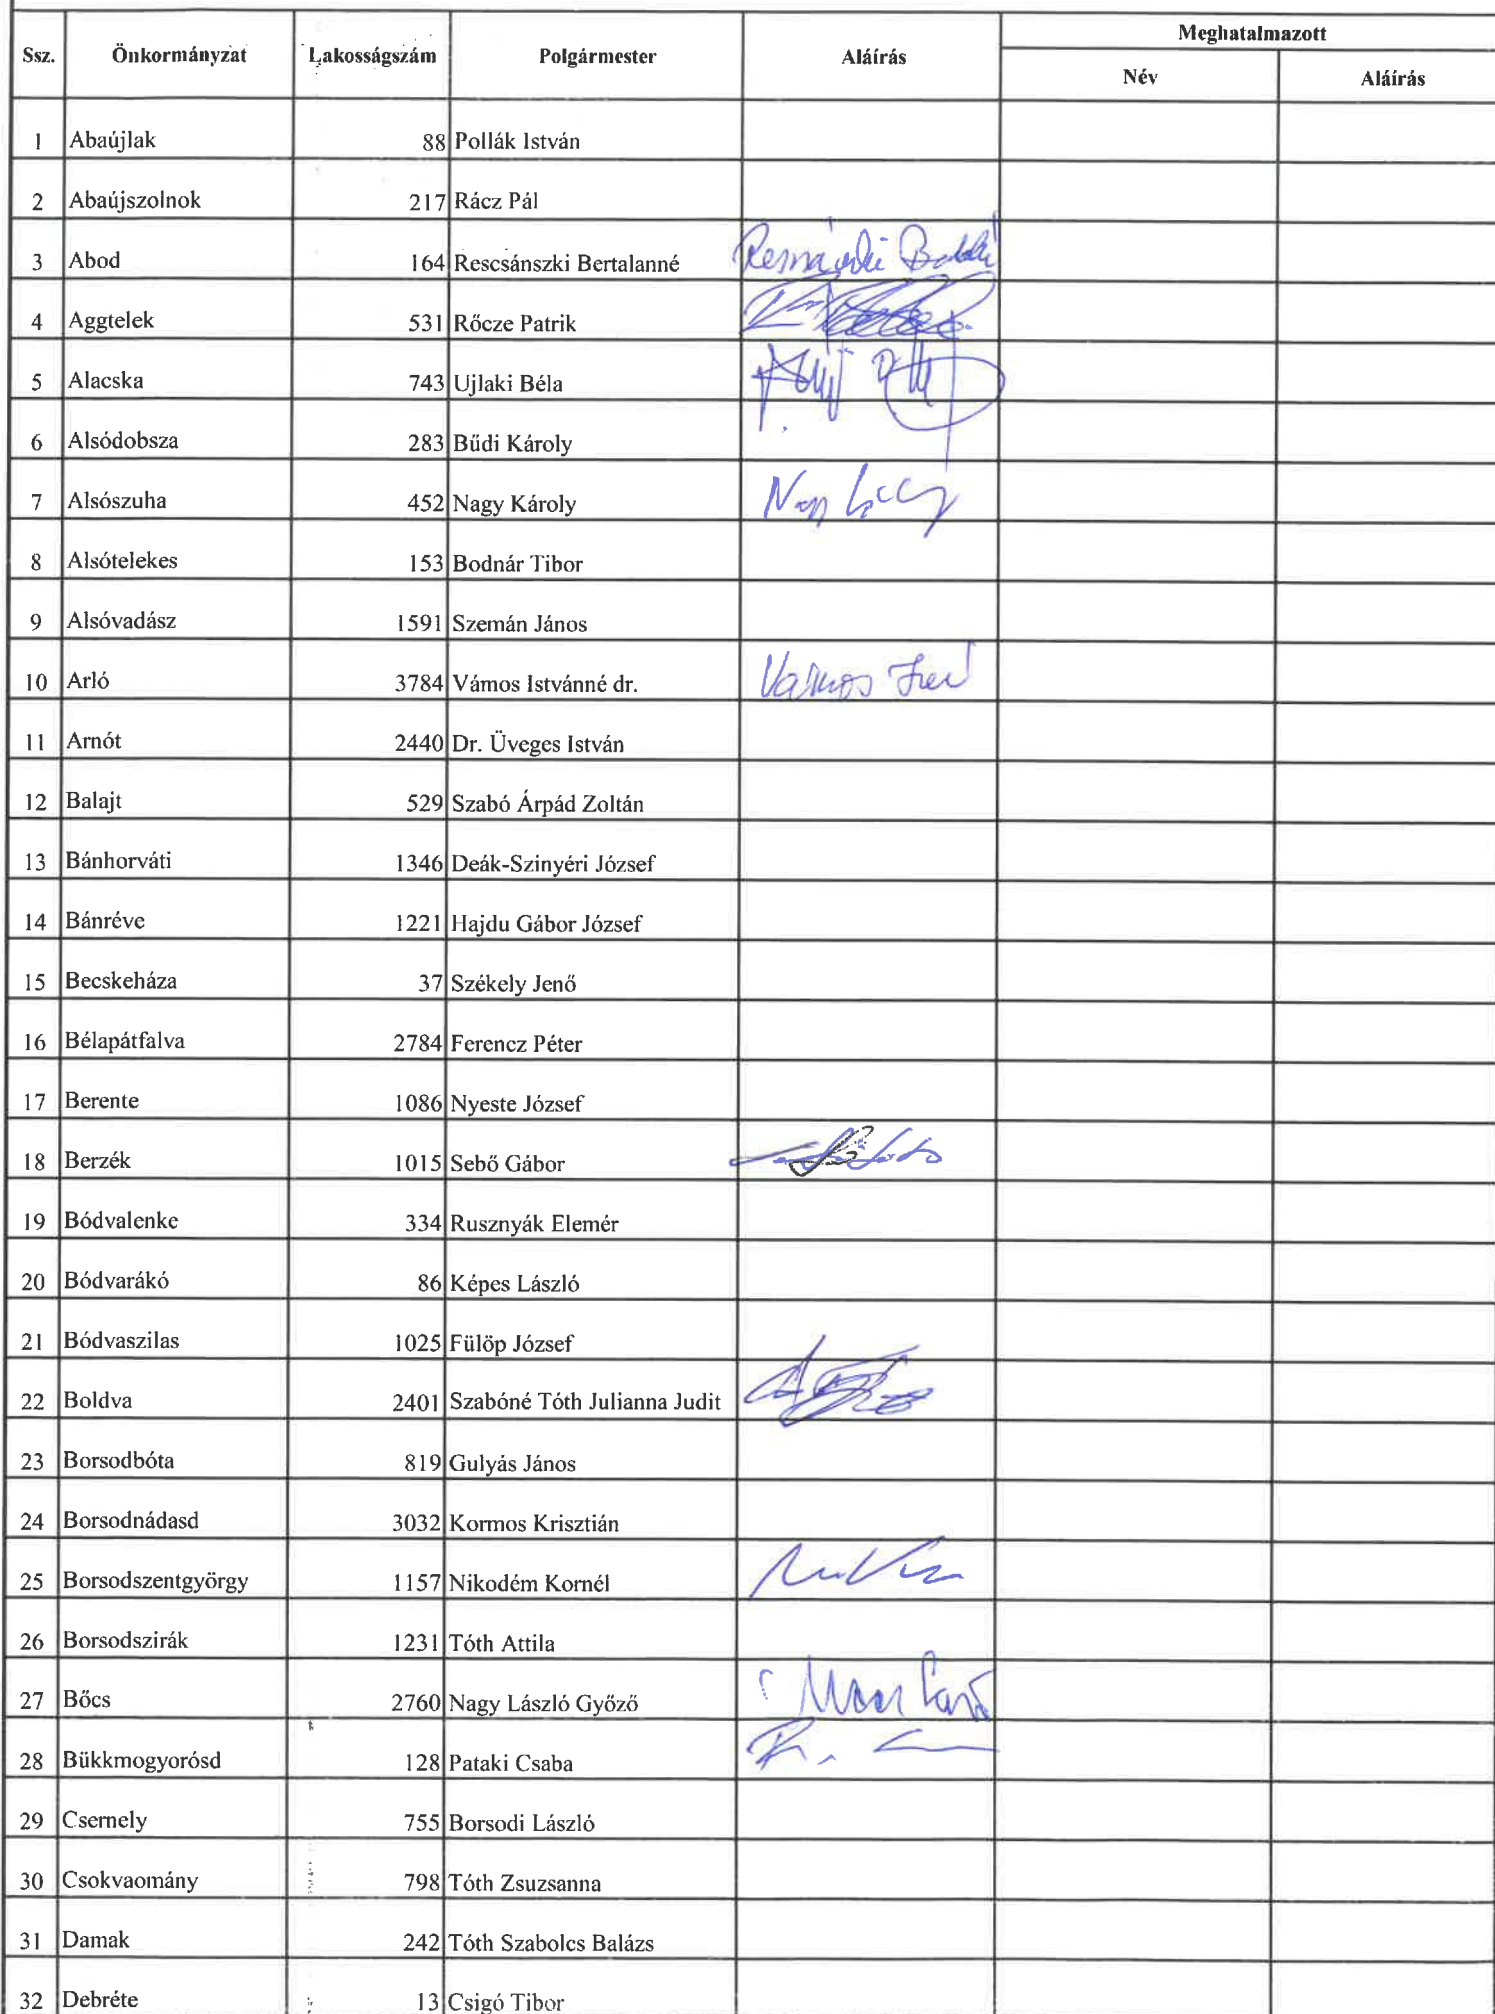 Ssz. Önkormányzat Lakosságszám Polgármester Aláírás Meghatalmazott
Név Aláírás
1 Abaújlak 88 Pollák István
2 Abaújszolnok 217 Rácz Pál
3 Abod 164 Rescsánszki Bertalanné
4 Aggtelek 531 Rőcze Patrik
5 Alacska 743 Ujlaki Béla
6 Alsódobsza 283 Bűdi Károly
7 Alsószuha 452 Nagy Károly
8 Alsótelekes 153 Bodnár Tibor
9 Alsóvadász 1591 Szemán János
10 Arló 3784 Vámos Istvánné dr. Vámos
11 Arnót 2440 Dr. Üveges István
12 Balajt 529 Szabó Árpád Zoltán
13 Bánhorváti 1346 Deák-Szinyéri József
14 Bánréve 1221 Hajdu Gábor József
15 Becskeháza 37 Székely Jenő
16 Bélapátfalva 2784 Ferencz Péter
17 Berente 1086 Nyeste József
18 Berzék 1015 Sebő Gábor
19 Bódvalenke 334 Rusznyák Elemér
20 Bódvarákó 86 Képes László
21 Bódvaszilas 1025 Fülöp József
22 Boldva 2401 Szabóné Tóth Julianna Judit
23 Borsodbóta 819 Gulyás János
24 Borsodnádasd 3032 Kormos Krisztián
25 Borsodszentgyörgy 1157 Nikodém Kornél
26 Borsodszirák 1231 Tóth Attila
27 Bőcs 2760 Nagy László Győző
28 Bükkmogyorósd 128 Pataki Csaba
29 Csernely 755 Borsodi László
30 Csokvaomány 798 Tóth Zsuzsanna
31 Damak 242 Tóth Szabolcs Balázs
32 Debréte 13 Csigó Tibor